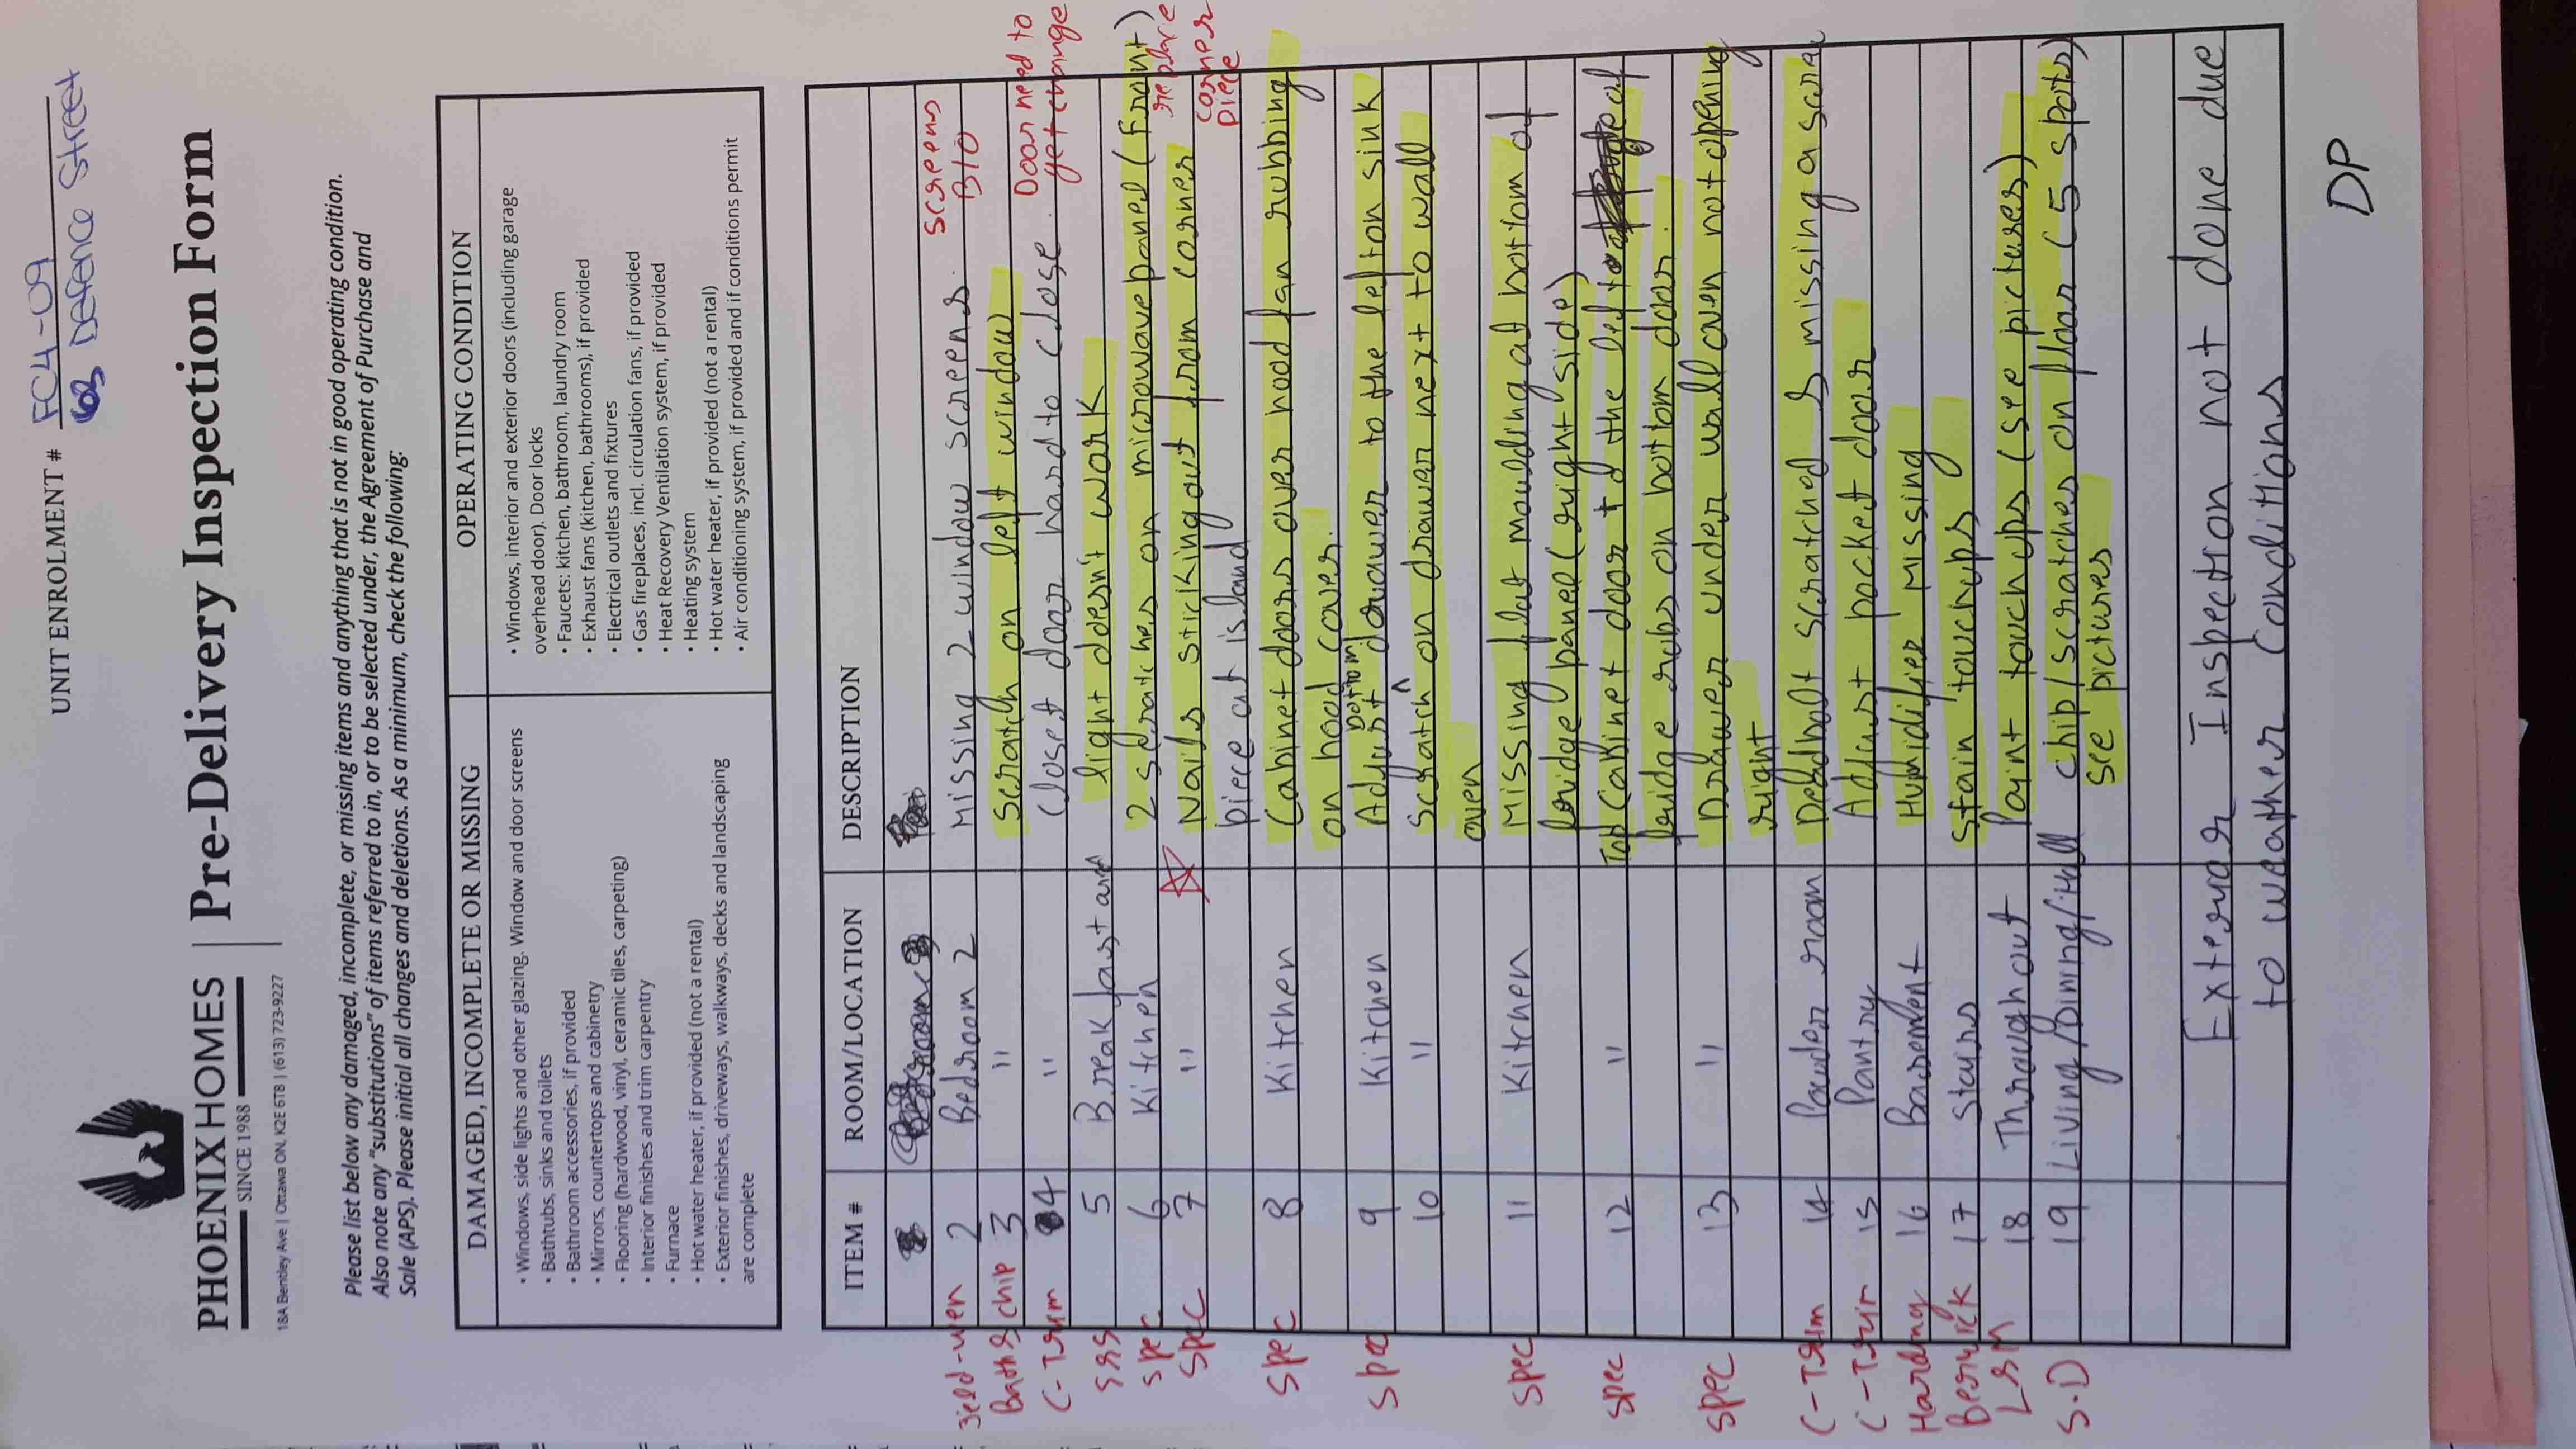 UNIT ENROLMENT # FC4-09
Defence Street
PHOENIX HOMES
SINCE 1988
Pre-Delivery Inspection Form
18A Bentley Ave | Ottawa ON, K2E 6T8 | (613) 723-9227
Please list below any damaged, incomplete, or missing items and anything that is not in good operating condition.
Also note any "substitutions" of items referred to in, or to be selected under, the Agreement of Purchase and
Sale (APS). Please initial all changes and deletions. As a minimum, check the following:
DAMAGED, INCOMPLETE OR MISSING
• Windows, side lights and other glazing. Window and door screens
• Bathtubs, sinks and toilets
• Bathroom accessories, if provided
• Mirrors, countertops and cabinetry
• Flooring (hardwood, vinyl, ceramic tiles, carpeting)
• Interior finishes and trim carpentry
• Furnace
• Hot water heater, if provided (not a rental)
• Exterior finishes, driveways, walkways, decks and landscaping
are complete
OPERATING CONDITION
• Windows, interior and exterior doors (including garage
overhead door). Door locks
• Faucets: kitchen, bathroom, laundry room
• Exhaust fans (kitchen, bathrooms), if provided
• Electrical outlets and fixtures
• Gas fireplaces, incl. circulation fans, if provided
• Heat Recovery Ventilation system, if provided
• Heating system
• Hot water heater, if provided (not a rental)
• Air conditioning system, if provided and if conditions permit
ITEM # ROOM/LOCATION DESCRIPTION
2 Bedroom 2 Missing 2 window screens. screens B/O
Bath & chip 3 " Scratch on left window
C-Trim 4 " Closet door hard to close. Door need to get change
5 Breakfast area light doesn't work
spec 6 Kitchen 2 scratches on microwave panel (front)
spec 7 " Nails sticking out from corner replace corner piece
piece at island
spec 8 Kitchen Cabinet doors over hood fan rubbing
on hood cover.
spec 9 Kitchen Adjust bottom drawer to the left on sink
10 " Scratch on drawer next to wall
oven
spec 11 Kitchen Missing flat moulding at bottom of
fridge panel (right side)
spec 12 " Top Cabinet door to the left of
fridge rubs on bottom door.
spec 13 " Drawer under wall oven not opening
right
C-Trim 14 Powder room Deadbolt scratched & missing a screw
C-Trim 15 Pantry Adjust pocket door
Harding 16 Basement Humidifier Missing
Berwick 17 Stairs Stain touchups
18 Throughout Paint touchups (see pictures)
S.D 19 Living/Dining/Hall chip/scratches on floor (5 spots)
see pictures
Exterior Inspection not done due
to weather conditions
DP